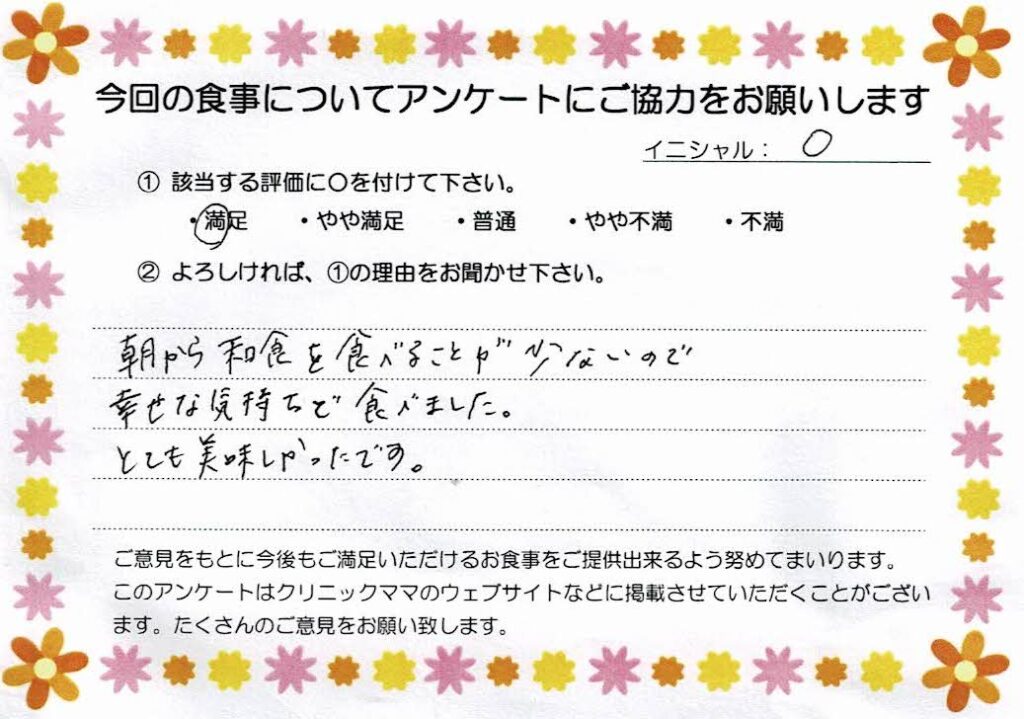 今回の食事についてアンケートにご協力をお願いします
イニシャル： O
① 該当する評価に〇を付けて下さい。
・満足 ・やや満足 ・普通 ・やや不満 ・不満
② よろしければ、①の理由をお聞かせ下さい。
朝から和食を食べることが少ないので
幸せな気持ちで食べました。
とても美味しかったです。
ご意見をもとに今後もご満足いただけるお食事をご提供出来るよう努めてまいります。
このアンケートはクリニックママのウェブサイトなどに掲載させていただくことがござい
ます。たくさんのご意見をお願い致します。